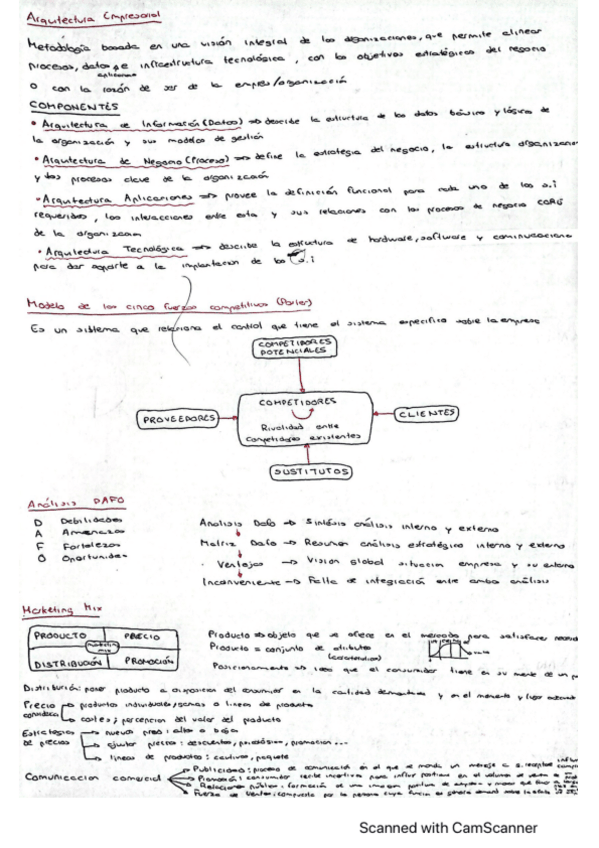 Arquitectura Empresarial
Metodología basada en una visión integral de las organizaciones, que permite alinear
procesos, datos, e infraestructura tecnológica, con los objetivos estratégicos del negocio
aplicaciones
o con la razón de ser de la empres/organización
COMPONENTES
• Arquitectura de Información (Datos) => describe la estructura de los datos básicos y lógica de
la organización y sus modelos de gestión
• Arquitectura de Negocio (Proceso) => define la estrategia del negocio, la estructura organizacion
y los procesos clave de la organizacion
• Arquitectura Aplicaciones => provee la definición funcional para cada uno de los s.i
requeridos, las interacciones entre esta y sus relaciones con los procesos de negocio CORE
de la organizacion
• Arquitectura Tecnológica => describe la estructura de hardware, software y comunicaciones
para dar soporte a la implantacion de los s.i
Modelo de las cinco fuerzas competitivas (Porter)
Es un sistema que relaciona el control que tiene el sistema especifico sobre la empresa
COMPETIDORES
POTENCIALES
COMPETIDORES
PROVEEDORES
CLIENTES
Rivalidad entre
Competidores existentes
SUSTITUTOS
Análisis DAFO
D Debilidades
A Amenazas
F Fortalezas
O Oportunidades
Analisis Dafo -> Sintesis análisis interno y externo
Matriz Dafo -> Resumen análisis estratégico interno y externo
· Ventajas -> Vision global situacion empresa y su entorno
Inconveniente -> Falta de integración entre ambos análisis
Marketing Mix
PRODUCTO
PRECIO
marketing
mix
DISTRIBUCIÓN
PROMOCIÓN
Producto => objeto que se ofrece en el mercado para satisfacer
Producto = conjunto de atributos
Posicionamiento => idea que el consumidor tiene en su mente de un
Distribución: poner producto a disposicion del consumidor en la cantidad demandada y en el momento y lugar
Precio -> productos individuales, gamas o lineas de producto
considera -> costes y percepcion del valor del producto
Estrategias -> nuevos prod: alto o bajo
de precios -> ajustar precios: descuentos, psicológico, promocion...
-> lineas de productos: cautivo, paquete
Comunicacion comercial
Publicidad: proceso de comunicación en el que se manda un mensaje a
Promoción: consumidor recibe incentivos para influir positivam en el volumen de ventas
Relaciones públicas: formación de una imagen positiva de
Fuerza de Ventas: compuesta por la persona cuya función es
Scanned with CamScanner